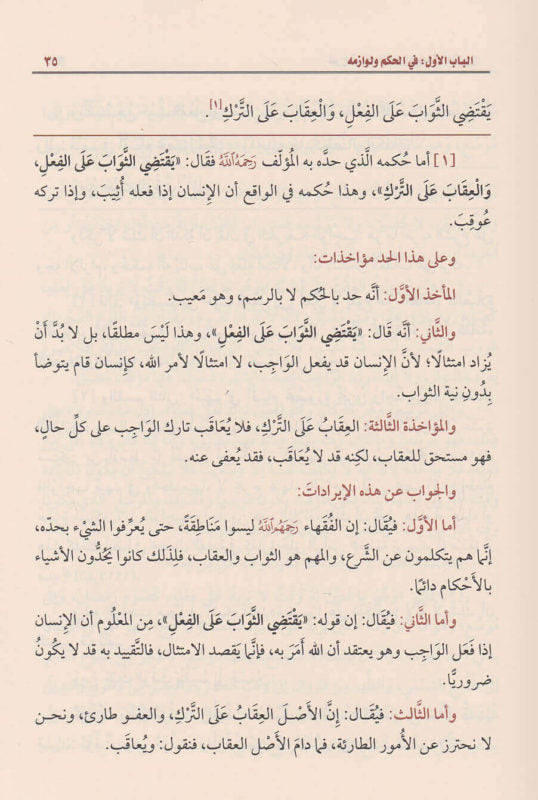 الباب الأول: في الحكم ولوازمه ٣٥
يَقْتَضِي الثَّوَابَ عَلَى الفِعْلِ، وَالْعِقَابَ عَلَى التَّرْكِ[١].
[١] أما حُكمه الَّذي حدَّه به المُؤلِّف رَحِمَهُ اللَّهُ فقال: «يَقْتَضِي الثَّوَابَ عَلَى الفِعْلِ،
وَالْعِقَابَ عَلَى التَّرْكِ»، وهذا حُكمه في الواقع أن الإنسان إذا فعله أُثِيبَ، وإذا تركه
عُوقِبَ.
وعلى هذا الحد مؤاخذات:
المأخذ الأوَّل: أنَّه حد بالحُكم لا بالرسم، وهو مَعيب.
والثَّاني: أنَّه قال: «يَقْتَضِي الثَّوَابَ عَلَى الفِعْلِ»، وهذا لَيْسَ مطلقًا، بل لا بُدَّ أَنْ
يُزاد امتثالًا؛ لأنَّ الإنسان قد يفعل الوَاجِب، لا امتثالًا لأمر الله، كإنسان قام يتوضأ
بِدُونِ نية الثواب.
والمؤاخذة الثَّالثة: العِقابُ عَلَى التَّرْكِ، فلا يُعَاقَب تارك الوَاجِب على كلِّ حالٍ،
فهو مستحق للعقاب، لكِنه قد لا يُعاقَب، فقد يُعفى عنه.
والجواب عن هذه الإيرادات:
أما الأوَّل: فيُقَال: إن الفُقَهاء رَحِمَهُمُ اللَّهُ ليسوا مَنَاطِقَةً، حتى يُعرِّفوا الشيْء بحدّه،
إنَّما هم يتكلمون عن الشَّرع، والمهم هو الثواب والعقاب، فلِذَلك كانوا يَحُدُّون الأشياء
بالأحْكام دائمًا.
وأما الثَّاني: فيُقَال: إن قوله: «يَقْتَضِي الثَّوَابَ عَلَى الفِعْلِ»، مِن المَعْلُوم أن الإنسان
إذا فعَل الوَاجِب وهو يعتقد أن الله أمَرَ به، فإنَّما يَقصد الامتثال، فالتَّقييد به قد لا يكُونُ
ضروريًّا.
وأما الثَّالث: فيُقَال: إنَّ الأَصْلَ العِقابُ عَلَى التَّرْكِ، والعفو طارئ، ونحن
لا نحترز عن الأُمور الطارئة، فما دامَ الأَصْل العقاب، فنقول: ويُعاقَب.